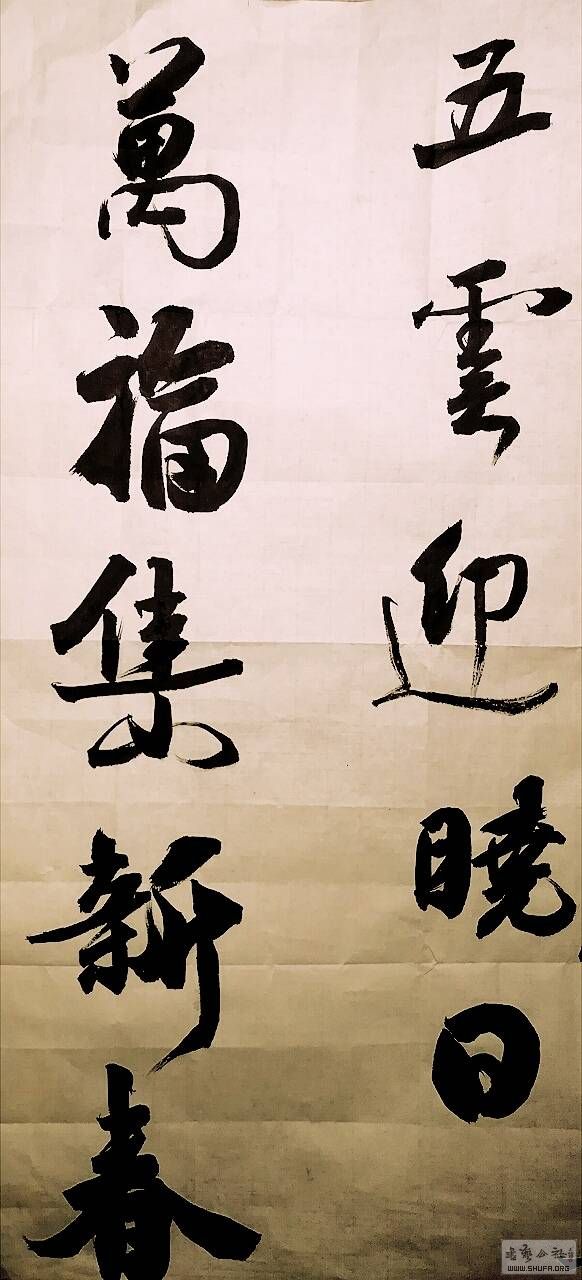 五雲迎曉日
萬福集新春
WWW.SHUFA.ORG